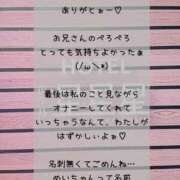 ありがとぉー♡
お兄さんのぺろぺろ
とっても気持ちよかったぁ
(/ω＼*)
HOTEL
最後は私のこと見ながら
オナニーしてくれて
いっちゃうなんて、わたしが
はずかしいよぉ♡
名刺無くてごめんね…
めいちゃんって名前